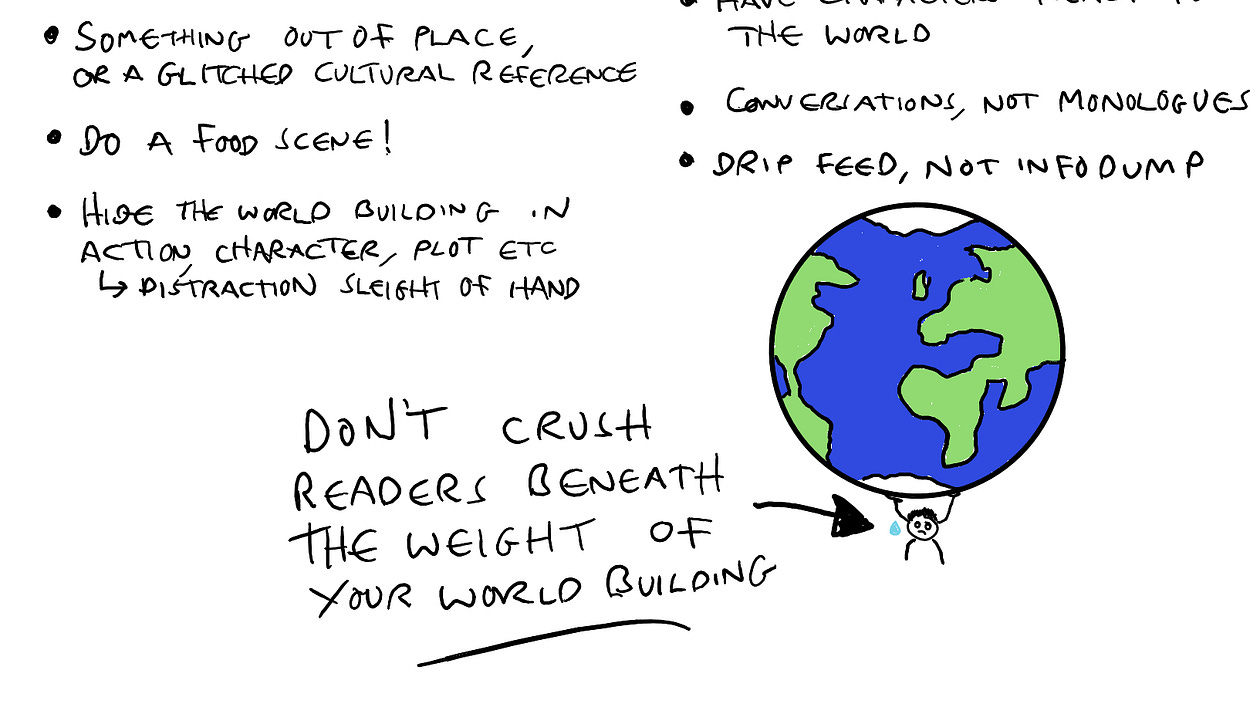 • SOMETHING OUT OF PLACE,
OR A GLITCHED CULTURAL REFERENCE
• DO A FOOD SCENE!
• HIDE THE WORLD BUILDING IN
ACTION, CHARACTER, PLOT ETC
↳ DISTRACTION SLEIGHT OF HAND
• HAVE CHARACTERS
THE WORLD
• CONVERSATIONS, NOT MONOLOGUES
• DRIP FEED, NOT INFODUMP
DON'T CRUSH
READERS BENEATH
THE WEIGHT OF
YOUR WORLD BUILDING